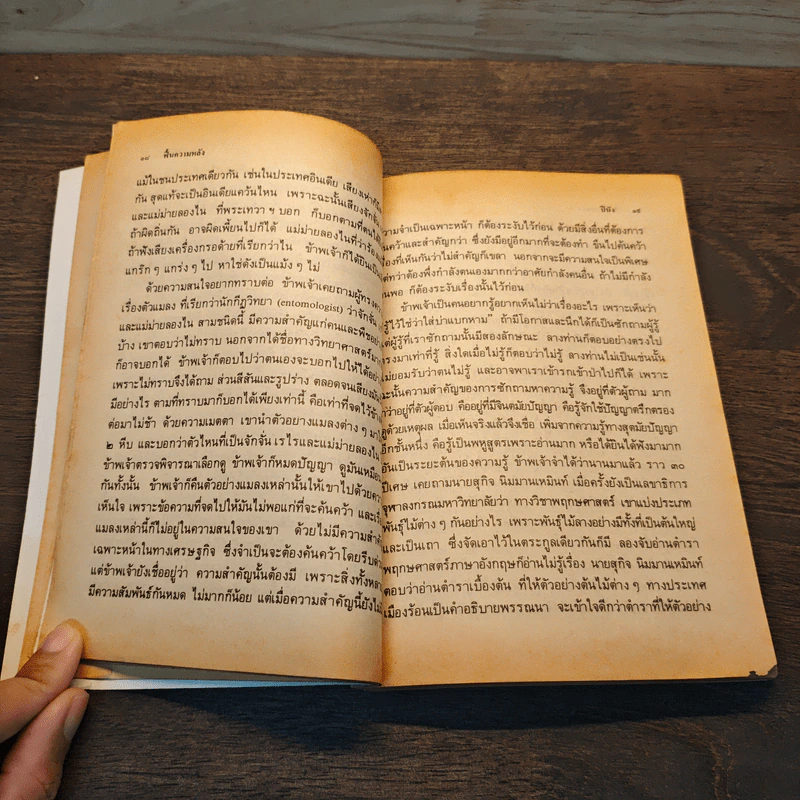 ๑๘ ฟื้นความหลัง
แม้ในชนประเทศเดียวกัน เช่นในประเทศอินเดีย เสียงเห่า
กัน สุดแท้จะเป็นอินเดียแคว้นไหน เพราะฉะนั้นเสียงจักจั่น
และแม่ม่ายลองใน ที่พระเทวาฯ บอก ก็บอกตามที่คนได้
ถ้าผิดถิ่นกัน อาจผิดเพี้ยนไปก็ได้ แม่ม่ายลองในที่ว่าร้อง
ถ้าฟังเสียงเครื่องกรอด้ายที่เรียกว่าไน ข้าพเจ้าก็ได้ยินเป็น
แกริ๊กๆ แกร่งๆ ไป หาใช่ดังเป็นแม้งๆ ไม่
ด้วยความสนใจอยากทราบต่อ ข้าพเจ้าเคยถามผู้ทรง
เรื่องตัวแมลง ที่เรียกว่านักกีฏวิทยา (entomologist) ว่าจักจั่น
และแม่ม่ายลองใน สามชนิดนี้ มีความสำคัญแก่คนและพืชอย่าง
บ้าง เขาตอบว่าไม่ทราบ นอกจากได้ชื่อทางวิทยาศาสตร์มา
ก็อาจบอกได้ ข้าพเจ้าก็ตอบไปว่าตนเองจะบอกไปให้ได้อย่าง
เพราะไม่ทราบจึงได้ถาม ส่วนสีสันและรูปร่าง ตลอดจนเสียงมัน
มีอย่างไร ตามที่ทราบมาก็บอกได้เพียงเท่านี้ คือเท่าที่จดไว้ข้าง
ต่อมาไม่ช้า ด้วยความเมตตา เขานำตัวอย่างแมลงต่างๆ มา
๒ หีบ และบอกว่าตัวไหนที่เป็นจักจั่น เรไรและแม่ม่ายลองใน
ข้าพเจ้าตรวจพิจารณาเลือกดู ข้าพเจ้าก็หมดปัญญา ดูมันเหมือน
กันทั้งนั้น ข้าพเจ้าก็คืนตัวอย่างแมลงเหล่านั้นให้เขาไปด้วย
เห็นใจ เพราะข้อความที่จดไปให้มันไม่พอแก่ที่จะค้นคว้า และ
แมลงเหล่านี้ก็ไม่อยู่ในความสนใจของเขา ด้วยไม่มีความสำคัญ
เฉพาะหน้าในทางเศรษฐกิจ ซึ่งจำเป็นจะต้องค้นคว้าโดยรีบด่วน
แต่ข้าพเจ้ายังเชื่ออยู่ว่า ความสำคัญนั้นต้องมี เพราะสิ่งทั้งหลาย
มีความสัมพันธ์กันหมด ไม่มากก็น้อย แต่เมื่อความสำคัญนี้ยังไม่
ปีนัง ๑๙
ความจำเป็นเฉพาะหน้า ก็ต้องระงับไว้ก่อน ด้วยมีสิ่งอื่นที่ต้องการ
ค้นคว้าและสำคัญกว่า ซึ่งยังมีอยู่อีกมากที่จะต้องทำ ขืนไปค้นคว้า
เรื่องที่เห็นกันว่าไม่สำคัญก็เขลา นอกจากจะมีความสนใจเป็นพิเศษ
แต่ทว่าต้องพึ่งกำลังตนเองมากกว่าอาศัยกำลังคนอื่น ถ้าไม่มีกำลัง
ตนพอ ก็ต้องระงับเรื่องนั้นไว้ก่อน
ข้าพเจ้าเป็นคนอยากรู้อยากเห็นไม่ว่าเรื่องอะไร เพราะเห็นว่า
"รู้ไว้ใช่ว่าใส่บ่าแบกหาม" ถ้ามีโอกาสและนึกได้ก็เป็นซักถามผู้รู้
แต่ผู้รู้ที่เราซักถามนั้นมีสองลักษณะ ลางท่านก็ตอบอย่างตรงไป
ตรงมาเท่าที่รู้ สิ่งใดเมื่อไม่รู้ก็ตอบว่าไม่รู้ ลางท่านไม่เป็นเช่นนั้น
ไม่ยอมรับว่าตนไม่รู้ และอาจพาเราเข้ารกเข้าป่าไปก็ได้ เพราะ
ฉะนั้นความสำคัญของการซักถามหาความรู้ จึงอยู่ที่ตัวผู้ถาม มาก
กว่าอยู่ที่ตัวผู้ตอบ คืออยู่ที่มีจินตมัยปัญญา คือรู้จักใช้ปัญญาตรึกตรอง
ดูด้วยเหตุผล เมื่อเห็นจริงแล้วจึงเชื่อ เพิ่มจากความรู้ทางสุตมัยปัญญา
อีกชั้นหนึ่ง คือรู้เป็นพหูสูตเพราะอ่านมาก หรือได้ยินได้ฟังมามาก
อันเป็นระยะต้นของความรู้ ข้าพเจ้าจำได้ว่านานมาแล้ว ราว ๓๐
ปีเศษ เคยถามนายสุกิจ นิมมานเหมินท์ เมื่อครั้งยังเป็นเลขาธิการ
จุฬาลงกรณมหาวิทยาลัยว่า ทางวิชาพฤกษศาสตร์ เขาแบ่งประเภท
พันธุ์ไม้ต่างๆ กันอย่างไร เพราะพันธุ์ไม้ลางอย่างมีทั้งที่เป็นต้นใหญ่
และเป็นเถา ซึ่งจัดเอาไว้ในตระกูลเดียวกันก็มี ลองจับอ่านตำรา
พฤกษศาสตร์ภาษาอังกฤษก็อ่านไม่รู้เรื่อง นายสุกิจ นิมมานเหมินท์
ตอบว่าอ่านตำราเบื้องต้น ที่ให้ตัวอย่างต้นไม้ต่างๆ ทางประเทศ
เมืองร้อนเป็นคำอธิบายพรรณนา จะเข้าใจดีกว่าตำราที่ให้ตัวอย่าง